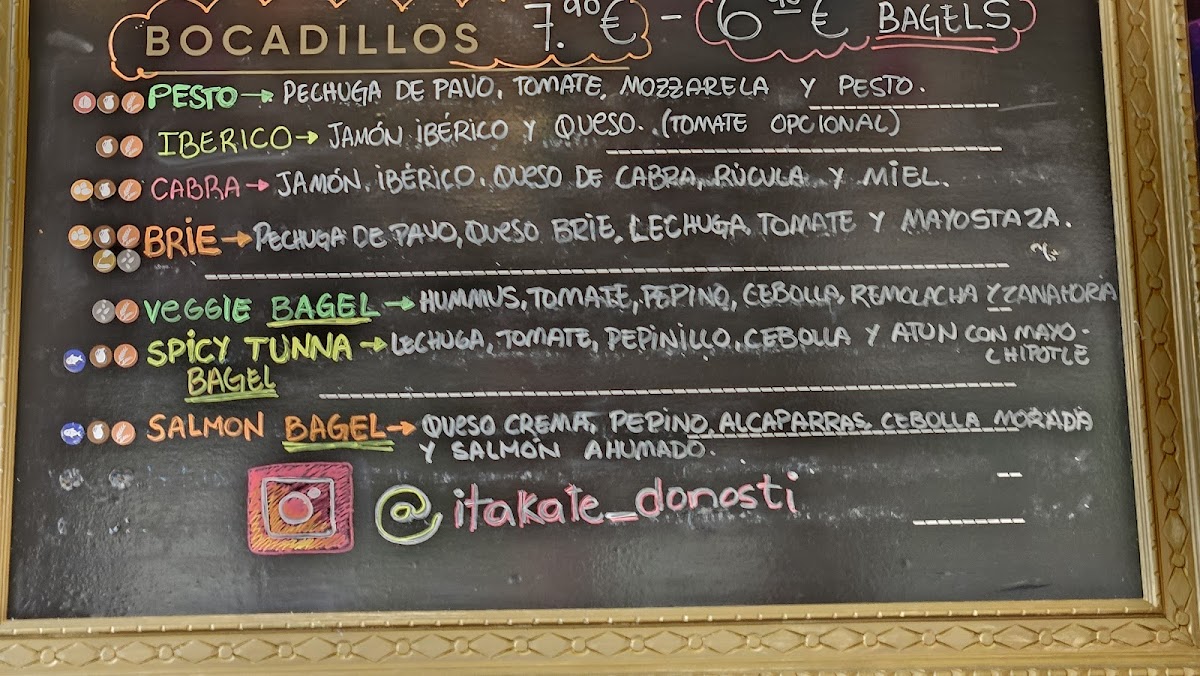 BOCADILLOS 7.90 € - 6.90 € BAGELS
PESTO → PECHUGA DE PAVO, TOMATE, MOZZARELA Y PESTO.
IBERICO → JAMÓN IBÉRICO Y QUESO. (TOMATE OPCIONAL)
CABRA → JAMÓN. IBÉRICO. QUESO DE CABRA, RÚCULA Y MIEL.
BRIE → PECHUGA DE PAVO, QUESO BRIE, LECHUGA TOMATE Y MAYOSTAZA.
VEGGIE BAGEL → HUMMUS, TOMATE, PEPINO, CEBOLLA, REMOLACHA Y ZANAHORIA
SPICY TUNNA → LECHUGA, TOMATE, PEPINILLO, CEBOLLA Y ATUN CON MAYO-
BAGEL CHIPOTLE
SALMON BAGEL → QUESO CREMA, PEPINO, ALCAPARRAS, CEBOLLA MORADA
Y SALMÓN AHUMADO.
@itakate_donosti